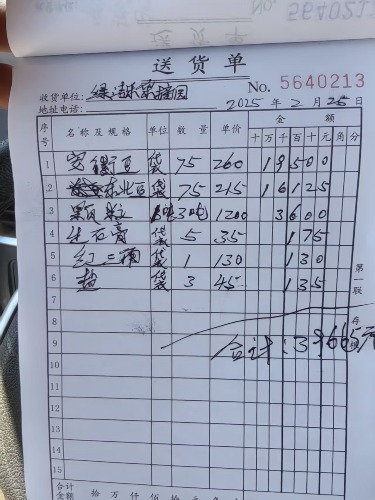 送货单
收货单位: No. 5640213
地址电话: 2025年2月25日
序号 名称及规格 单位 数量 单价 金额
十 万 千 百 十 元 角 分
1 安徽豆 袋 75 260 19500
2 东北豆 袋 75 215 16125
3 颗粒 3吨 1200 3600
4 生石膏 袋 5 35 175
5 红三顺 袋 1 130 130
6 盐 袋 3 45 135
7
8
9 合计:39665元
10
11
12
13
14
15
合计金额 拾 万 仟 佰 拾 元 角
第一联 存根